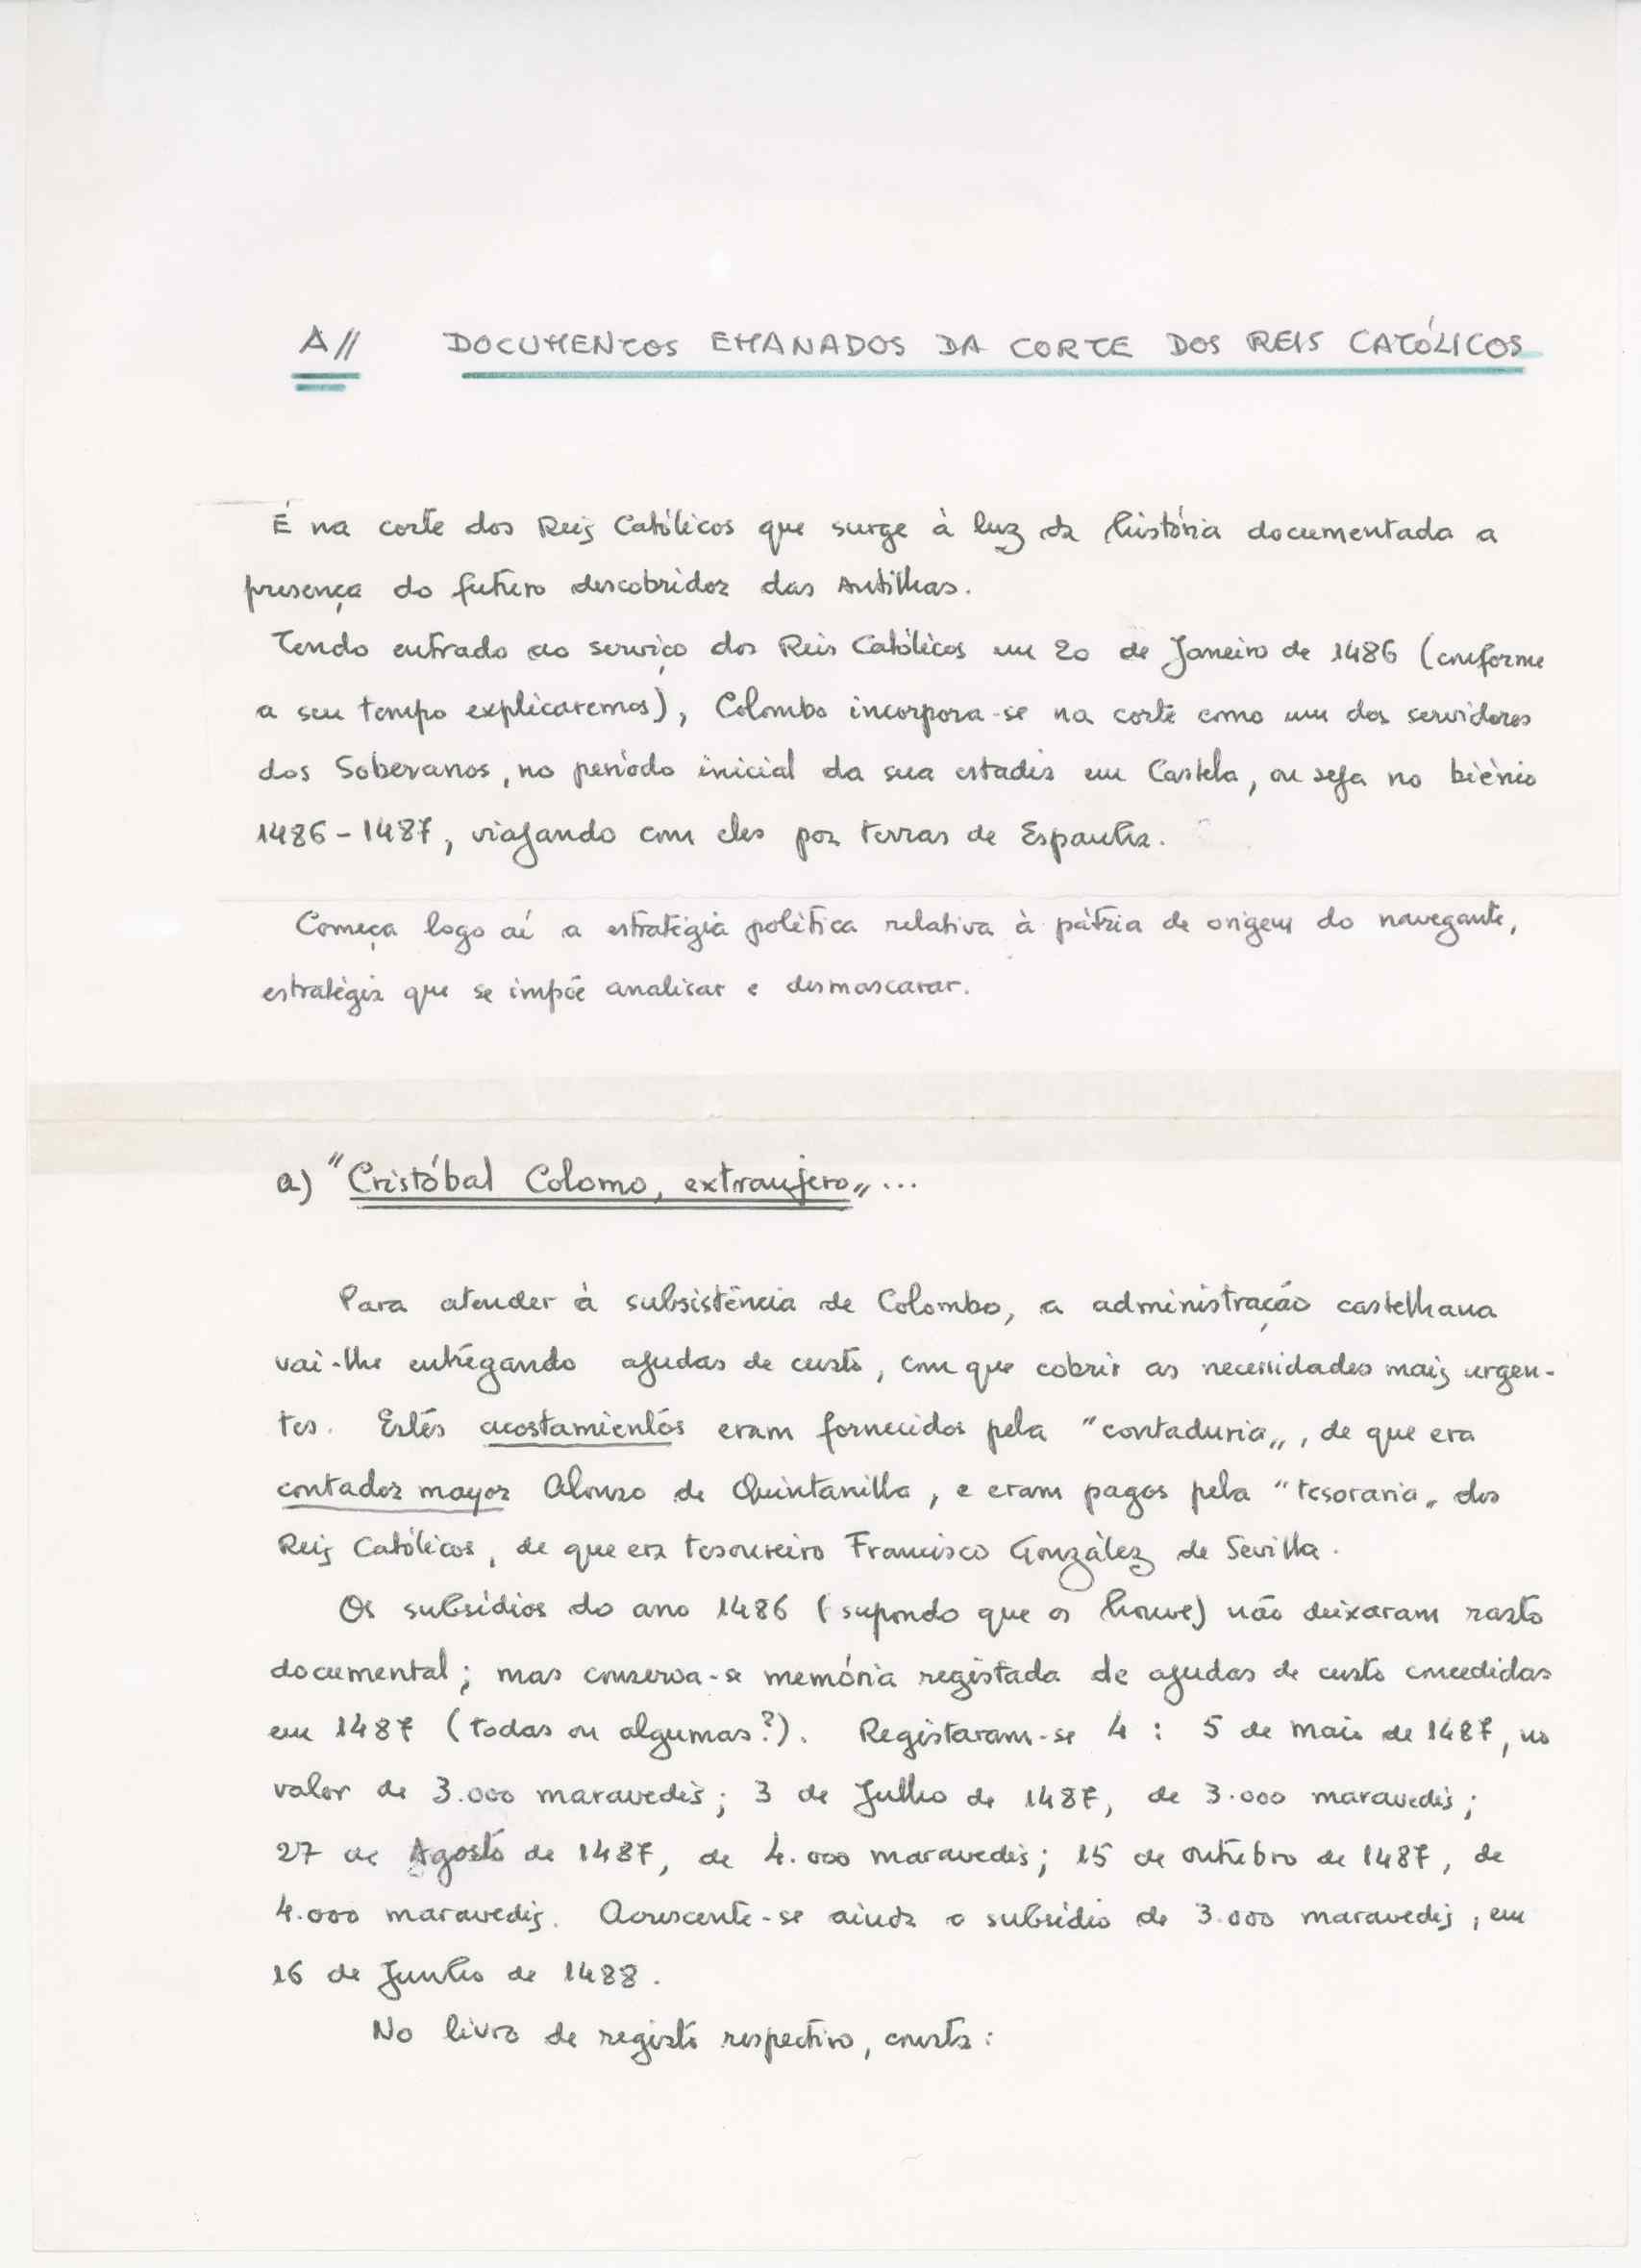 A// DOCUMENTOS EMANADOS DA CORTE DOS REIS CATÓLICOS
É na corte dos Reis Católicos que surge à luz da história documentada a
presença do futuro descobridor das Antilhas.
Tendo entrado ao serviço dos Reis Católicos em 20 de Janeiro de 1486 (conforme
a seu tempo explicaremos), Colombo incorpora-se na corte como um dos servidores
dos Soberanos, no período inicial da sua estadia em Castela, ou seja no biénio
1486-1487, viajando com eles por terras de Espanha.
Começa logo aí a estratégia política relativa à pátria de origem do navegante,
estratégia que se impõe analisar e desmascarar.
a) "Cristóbal Colomo, extranjero„...
Para atender à subsistência de Colombo, a administração castelhana
vai-lhe entregando ajudas de custo, com que cobrir as necessidades mais urgen-
tes. Estes acostamientos eram fornecidos pela "contaduria„, de que era
contador mayor Alonso de Quintanilla, e eram pagos pela "tesoraria„ dos
Reis Católicos, de que era tesoureiro Francisco González de Sevilla.
Os subsídios do ano 1486 (supondo que os houve) não deixaram rasto
documental; mas conserva-se memória registada de ajudas de custo concedidas
em 1487 (todas ou algumas?). Registaram-se 4: 5 de maio de 1487, no
valor de 3.000 maravedis; 3 de Julho de 1487, de 3.000 maravedis;
27 de Agosto de 1487, de 4.000 maravedis; 15 de outubro de 1487, de
4.000 maravedis. Acrescente-se ainda o subsídio de 3.000 maravedis, em
16 de Junho de 1488.
No livro de registo respectivo, consta: